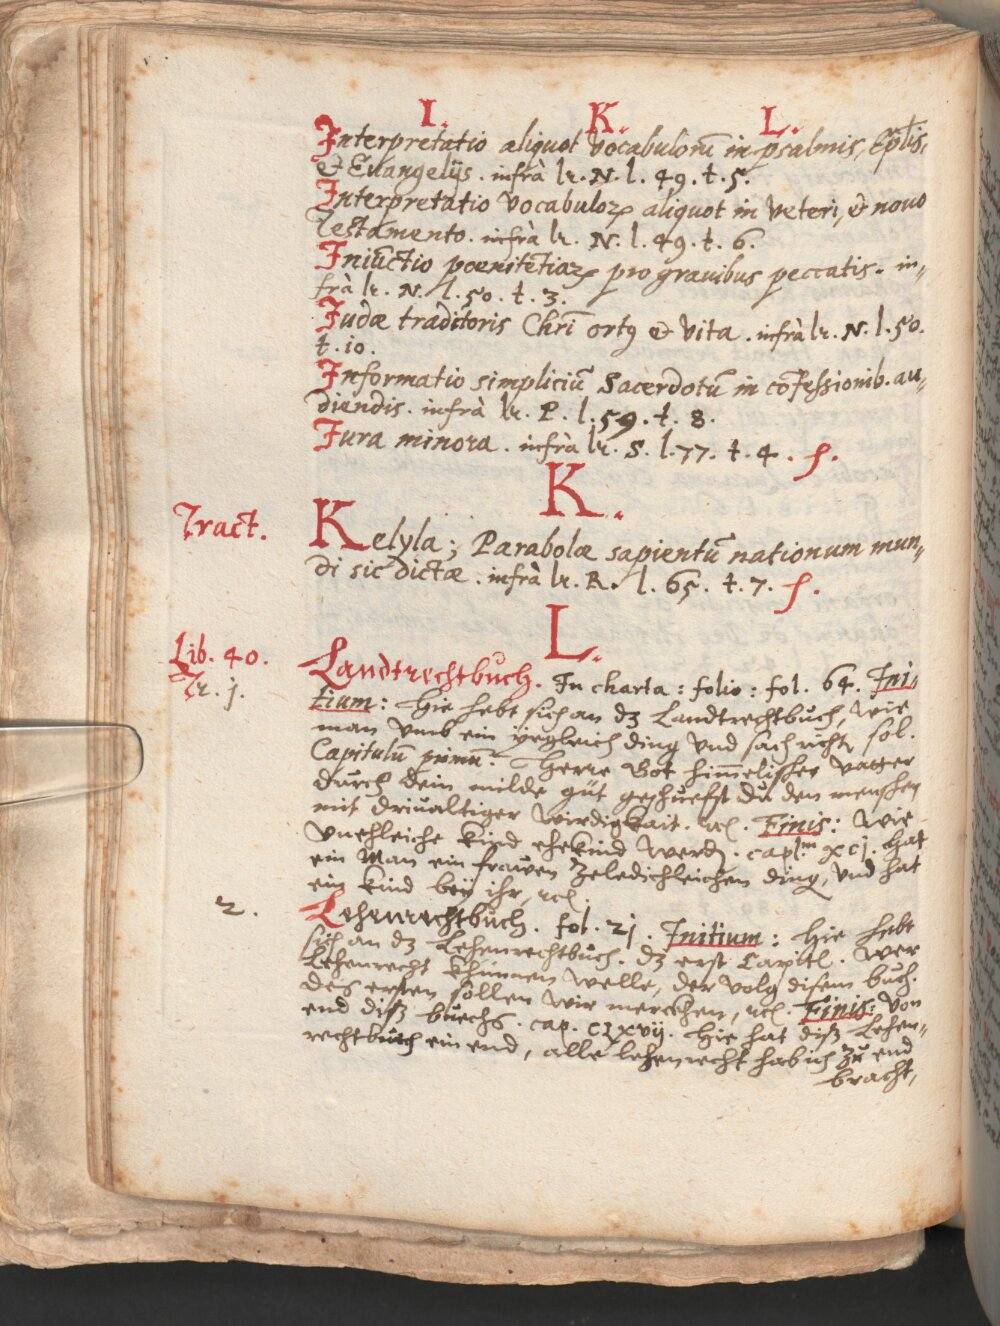 I. K. L.
Interpretatio aliquot vocabuloru̅ in psalmis, Ep̅lis,
& Euangelijs. infrà lr. N. l. 49. t. 5.
Interpretatio vocabuloꝝ aliquot in veteri, & nouo
Testamento. infrà lr. N. l. 49. t. 6.
Iniu̅ctio poenite̅tiaꝝ pro grauibus peccatis. in„
frà lr. N. l. 50. t. 3.
Iudæ traditoris Chr̅i ortꝰ & vita. infrà lr. N. l. 50.
t. 10.
Informatio simpliciu̅ Sacerdotu̅ in co̅fessionib. au„
diendis. infrà lr. P. l. 59. t. 8.
Iura minora. infrà lr. S. l. 77. t. 4. f.
K.
Tract.
Kelyla; Parabolæ sapientu̅ nationum mun„
di sic dictæ. infrà lr. R. l. 65. t. 7. f.
L.
Lib. 40.
Tr. j.
Landtrechtbuch. In charta: folio: fol. 64. Ini„
tium: Hie hebt sich an dz Landtrechtbuch, wie
man vmb ein yegleich ding vnd sach richt sol.
Capitulu̅ primu̅. Herre Got himelischer vatter
durch dein milde güt geschuefst du den menschen
mit driualtiger wirdigkait. ꝛc. Finis: Wie
vnehleiche kind ehekind werdn. capl.m xcj. Hat
ein Man ein frawen zeledichleichen ding, vnd hat
ein kind beÿ ihr, ꝛc.
2.
Lehenrechtbuch. fol. 21. Initium: Hie hebt
sich an dz Lehenrechtbuch. dz erst Capitl. Wer
Lehenrecht khünnen welle, der volg disem buch.
Des ersten sollen wir merckhen, ꝛc. Finis: Von
end diss buechs. cap. clxvij. Hie hat diss Lehen„
rechtbuch ein end, alle lehenrecht hab ich zu end
bracht,